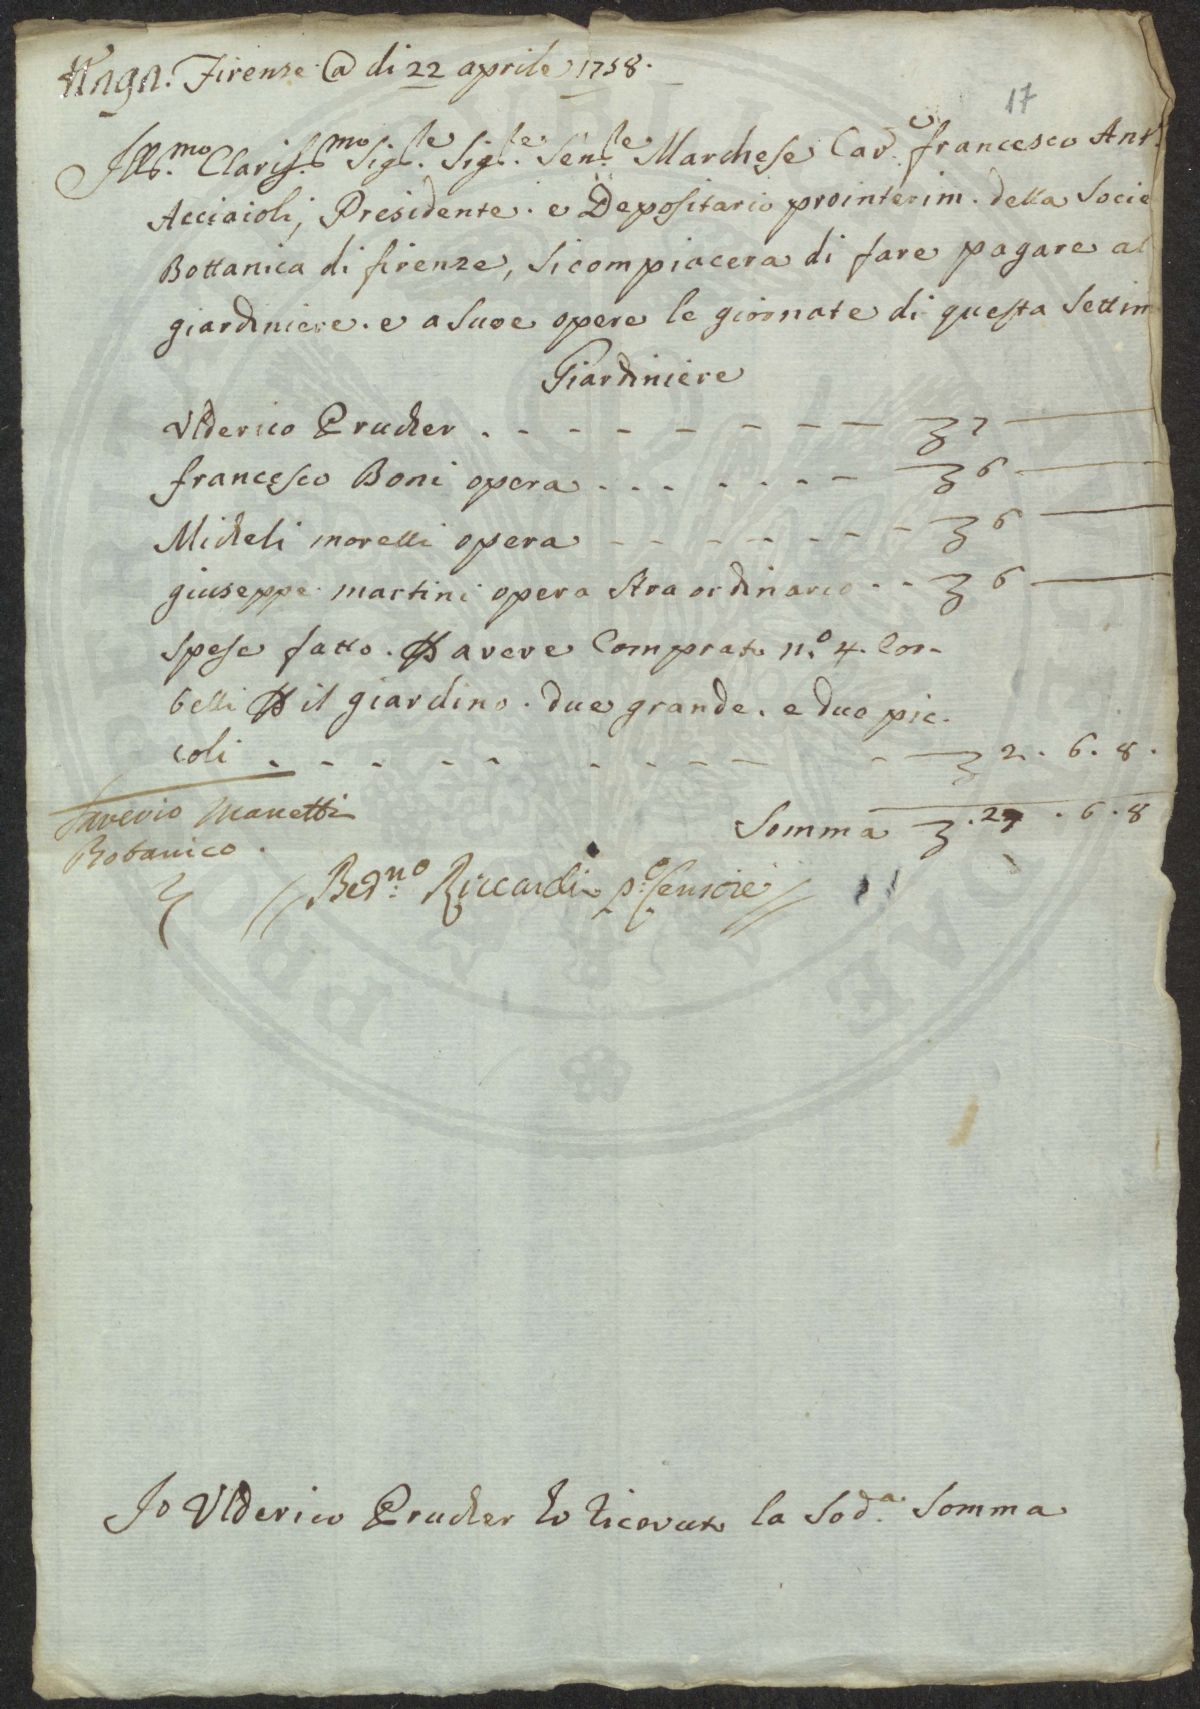 Firenze @ di 22 aprile 1758.
17
Ill.mo Clariss.mo Sig.re Sig.re Sen.re Marchese Cav.e francesco Ant.
Acciaioli, Presidente. e Depositario prointerim. della Socie
Bottanica di firenze, Si compiacera di fare pagare al
giardiniere. e a Suoe opere le giornate di questa Settim
Giardiniere
Ulderico Prucker . - - - - - - - - 7 —
francesco Boni opera . . . - - - - 6 —
Micheli morelli opera - - - - - - - 6 —
giuseppe martini opera Straordinario - - 6 —
spese fatto. P avere Comprato n.o 4. Cor-
belli P il giardino. due grande. e duo pic-
coli . - - - - - - - - - 2 . 6 . 8 .
Saverio Manetti
Somma . 27 . 6 . 8
Botanico .
// Bed.no Riccardi p.o Censore //
Io Ulderico Prucker ho ricevuto la Sod.a Somma